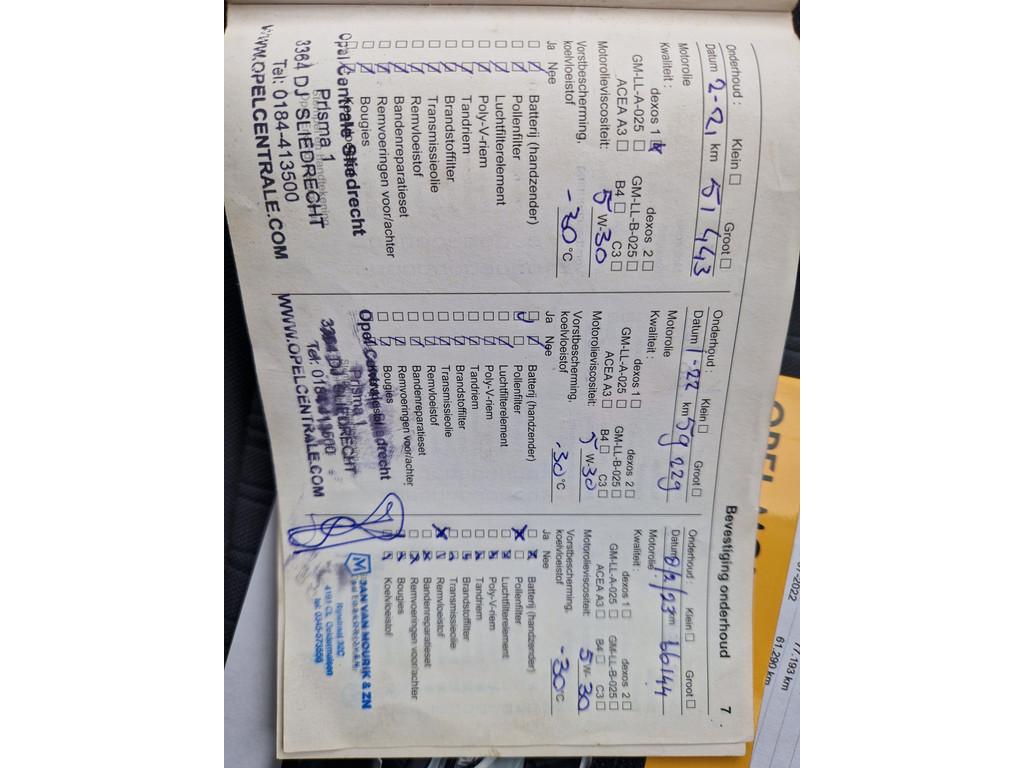 Bevestiging onderhoud
7
Onderhoud : Klein Groot
Datum 2-21 km 51443
Motorolie
Kwaliteit : dexos 1 dexos 2
GM-LL-A-025 GM-LL-B-025
ACEA A3 B4 C3
Motorolieviscositeit: 5 W-30
Vorstbescherming,
koelvloeistof -30 °C
Ja Nee
Batterij (handzender)
Pollenfilter
Luchtfilterelement
Poly-V-riem
Tandriem
Brandstoffilter
Transmissieolie
Remvloeistof
Bandenreparatieset
Remvoeringen voor/achter
Bougies
Opel Centrale Sliedrecht
Prisma 1
3364 DJ SLIEDRECHT
Tel: 0184-413500
WWW.OPELCENTRALE.COM
Onderhoud : Klein Groot
Datum 1-22 km 59229
Motorolie
Kwaliteit : dexos 1 dexos 2
GM-LL-A-025 GM-LL-B-025
ACEA A3 B4 C3
Motorolieviscositeit: 5 W-30
Vorstbescherming,
koelvloeistof -30 °C
Ja Nee
Batterij (handzender)
Pollenfilter
Luchtfilterelement
Poly-V-riem
Tandriem
Brandstoffilter
Transmissieolie
Remvloeistof
Bandenreparatieset
Remvoeringen voor/achter
Bougies
Opel Centrale Sliedrecht
Prisma 1
SLIEDRECHT
Tel: 0184
WWW.OPELCENTRALE.COM
Onderhoud : Klein Groot
Datum /2/23 km 66144
Motorolie
Kwaliteit : dexos 1 dexos 2
GM-LL-A-025 GM-LL-B-025
ACEA A3 B4 C3
Motorolieviscositeit: 5 W-30
Vorstbescherming,
koelvloeistof -30 °C
Ja Nee
Batterij (handzender)
Pollenfilter
Luchtfilterelement
Poly-V-riem
Tandriem
Brandstoffilter
Transmissieolie
Remvloeistof
Bandenreparatieset
Remvoeringen voor/achter
Bougies
Koelvloeistof
JAN VAN MOURIK & ZN
tel: 0345-573550
61.290 km